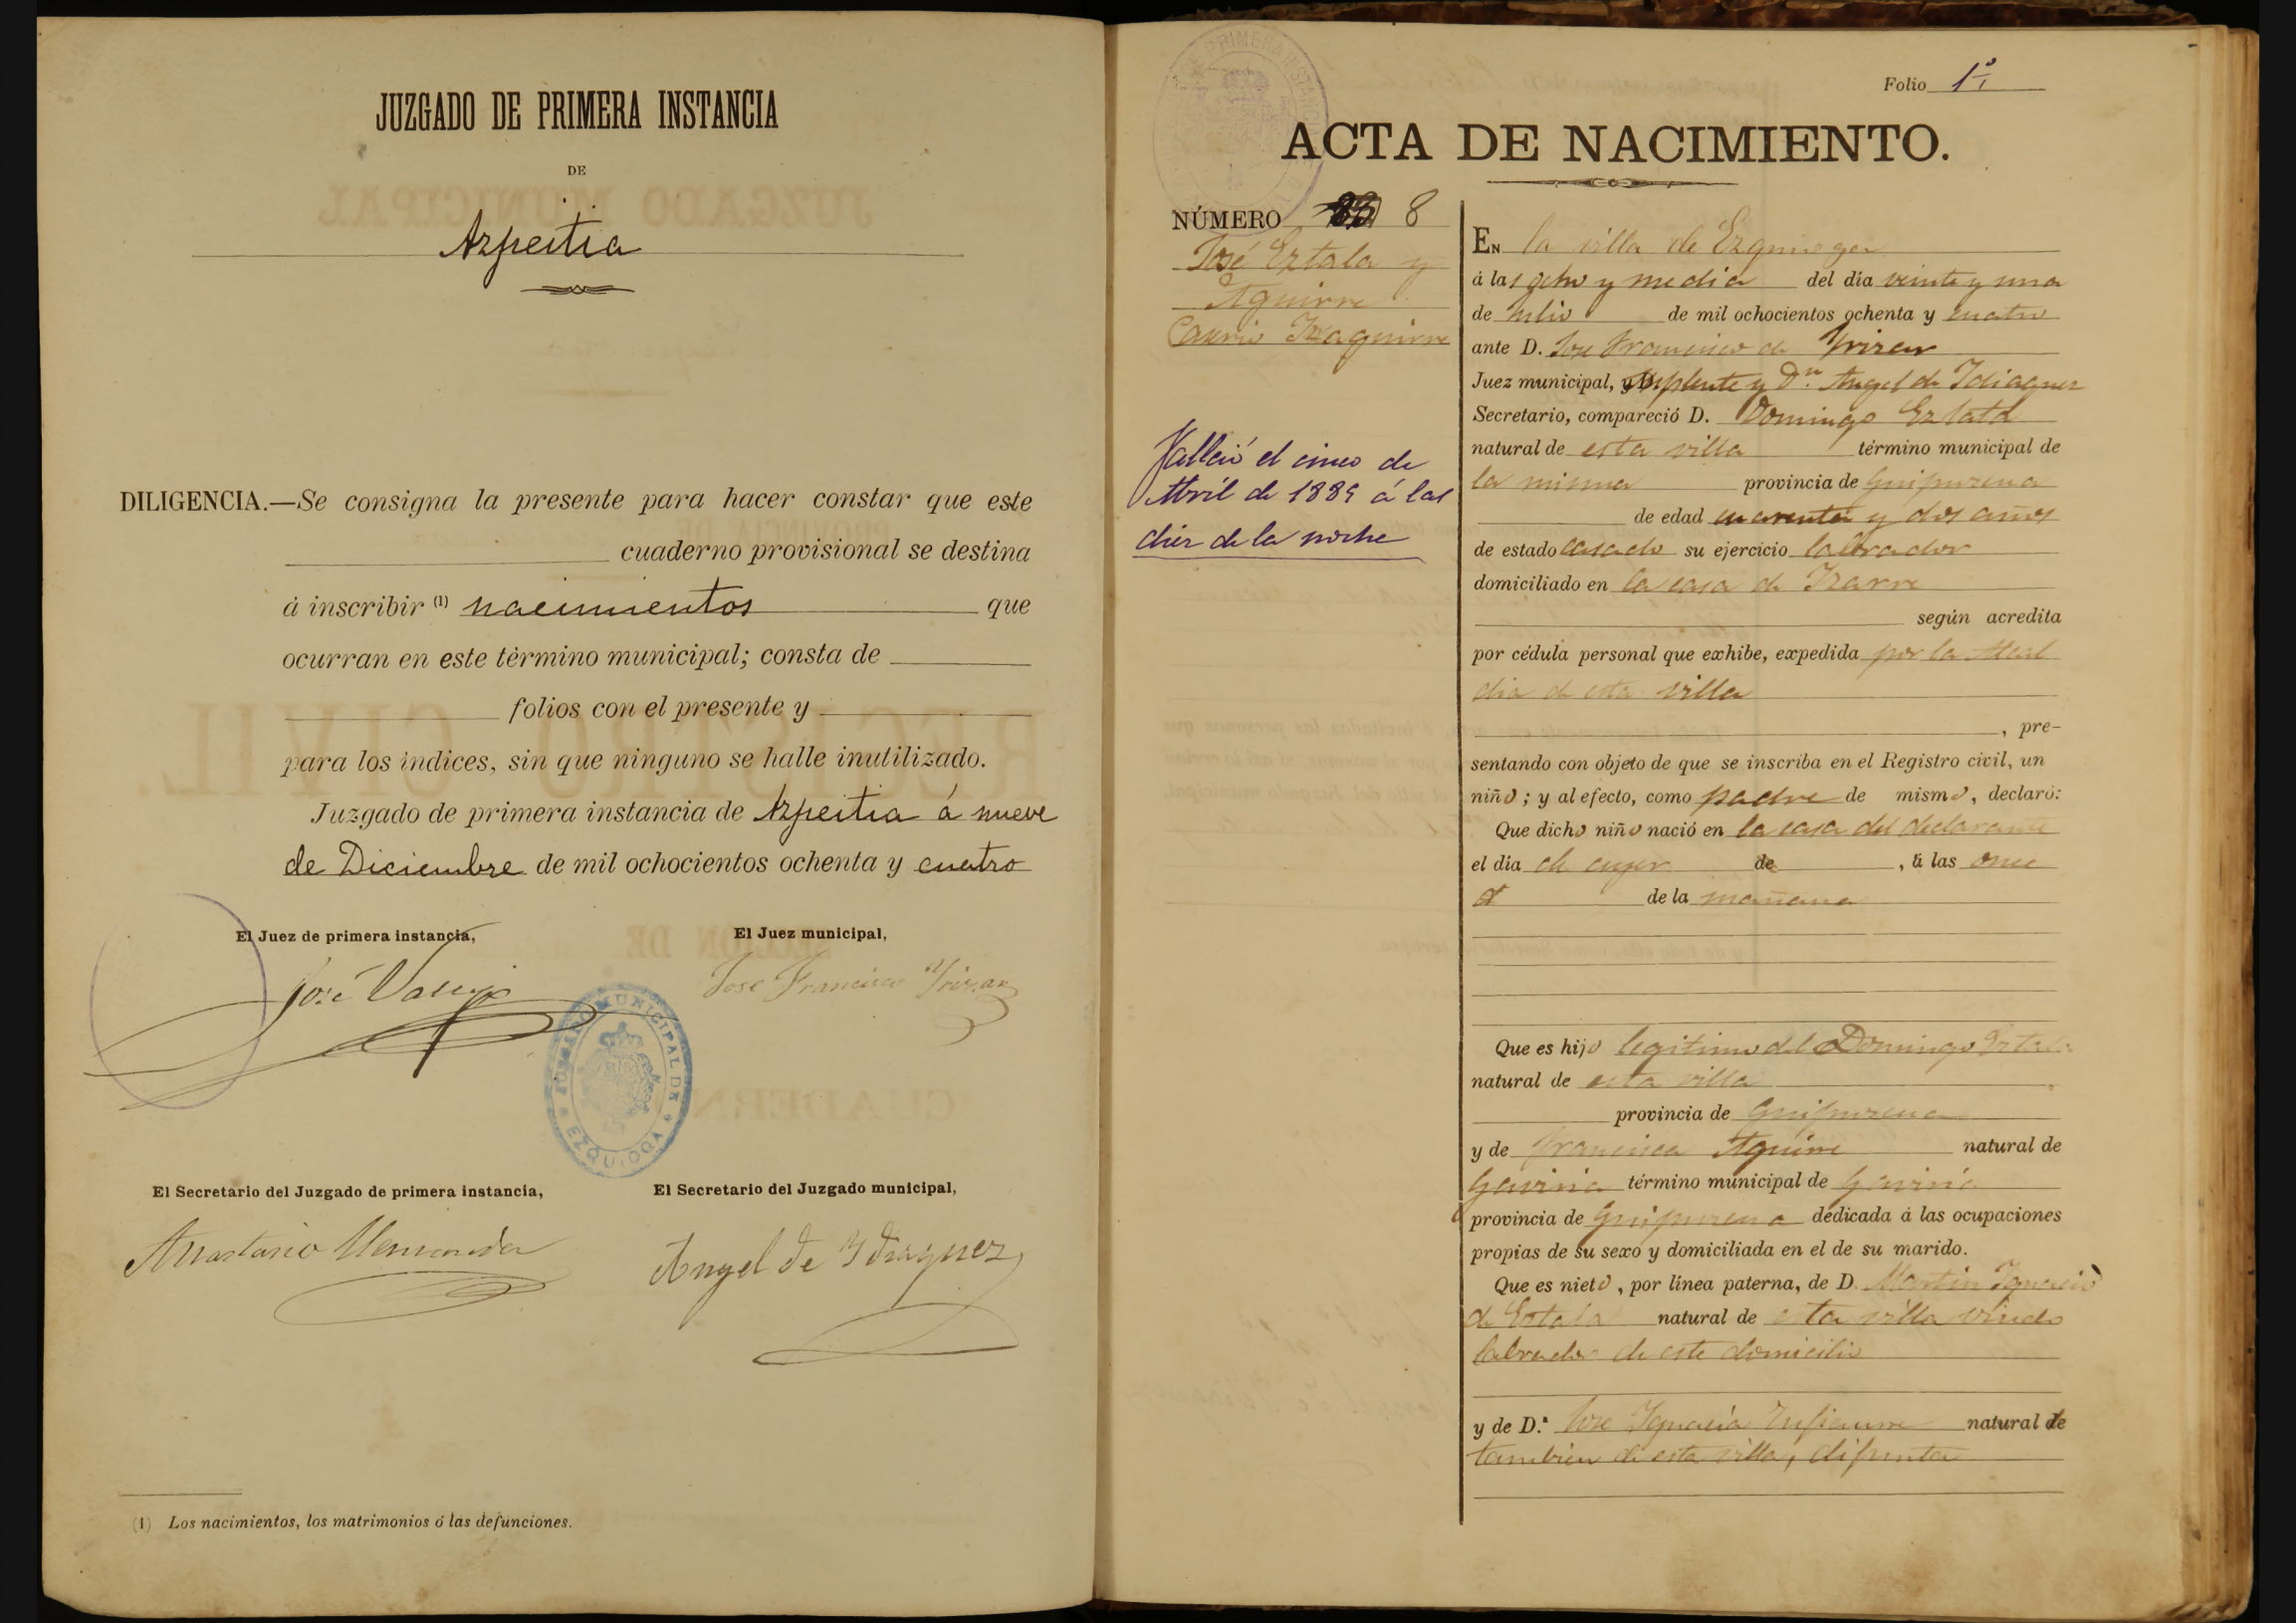 JUZGADO DE PRIMERA INSTANCIA
DE
Azpeitia
DILIGENCIA.—Se consigna la presente para hacer constar que este
cuaderno provisional se destina
á inscribir (1) nacimientos que
ocurran en este término municipal; consta de
folios con el presente y
para los indices, sin que ninguno se halle inutilizado.
Juzgado de primera instancia de Azpeitia á nueve
de Diciembre de mil ochocientos ochenta y cuatro
El Juez de primera instancia,
El Juez municipal,
José
Jose Francisco Yrizar
JUZGADO MUNICIPAL DE EZQUIOGA
El Secretario del Juzgado de primera instancia,
El Secretario del Juzgado municipal,
Anastasio
Angel de Ydiaquez
(1) Los nacimientos, los matrimonios ó las defunciones.
PRIMERA INSTANCIA
Folio 1º
ACTA DE NACIMIENTO.
NÚMERO 8
José Eztala y
Aguirre
Caserio
Falleció el cinco de
Abril de 1889 á las
diez de la noche
EN la villa de Ezquioga
á las ocho y media del dia veinte y uno
de Julio de mil ochocientos ochenta y cuatro
ante D. Jose Francisco de Yrizar
Juez municipal, suplente y Dn. Angel de Idiaquez
Secretario, compareció D. Domingo Eztala
natural de esta villa término municipal de
la misma provincia de Guipuzcoa
de edad cuarenta y dos años
de estado casado su ejercicio labrador
domiciliado en la casa de Izarre
según acredita
por cédula personal que exhibe, expedida por la Alcal
dia de esta villa
, pre-
sentando con objeto de que se inscriba en el Registro civil, un
niño; y al efecto, como padre de mismo, declaró:
Que dicho niño nació en la casa del declarante
el dia de ayer de , á las once
de la mañana
Que es hijo legitimo del Domingo Eztala
natural de esta villa
provincia de Guipuzcoa
y de Francisca Aguirre natural de
Gaviria término municipal de Gaviria
provincia de Guipuzcoa dedicada á las ocupaciones
propias de su sexo y domiciliada en el de su marido.
Que es nieto, por línea paterna, de D. Martin Ignacio
de Eztala natural de esta villa viudo
labrador de este domicilio
y de D.ª Jose Ignacia natural de
tambien de esta villa, difunta